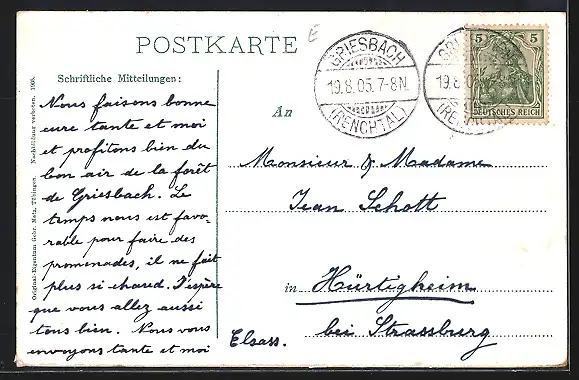 POSTKARTE
E
Schriftliche Mitteilungen:
Nous faisons bonne
cure tante et moi
et profitons bien du
bon air de la forêt
de Griesbach. Le
temps nous est favo-
rable pour faire des
promenades, il ne fait
plus si chaud. J'espère
que vous allez aussi
tous bien. Nous vous
envoyons tante et moi
Original-Eigentum Gebr. Metz, Tübingen. Nachbildung verboten. 1905.
GRIESBACH
19.8.05. 7-8N.
(RENCHTAL)
GRIESBACH
19.8.05
(RENCHTAL)
5 5
DEUTSCHES REICH
An
Monsieur & Madame
Jean Schott
in Hürtigheim
bei Strassburg
Elsass.